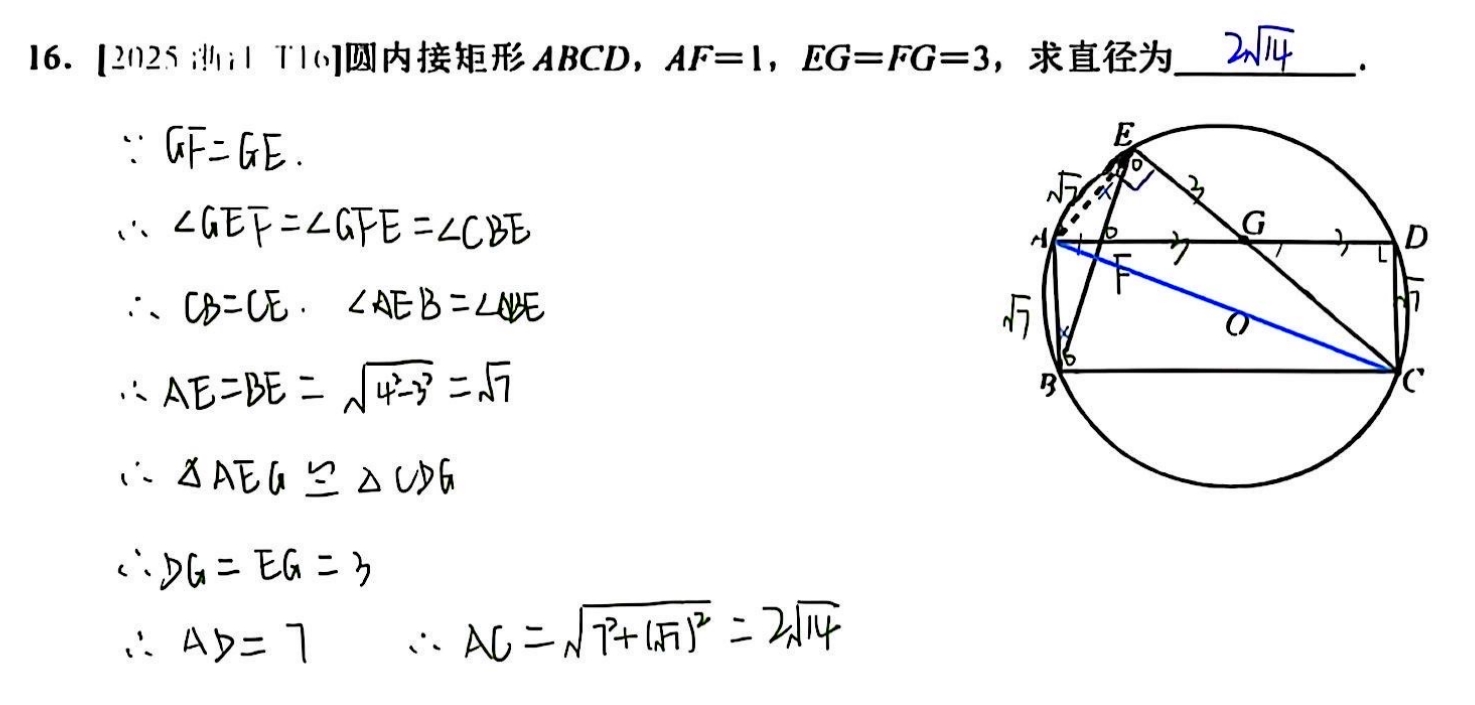 16. [2025 浙江 T16]圆内接矩形 ABCD，AF=1，EG=FG=3，求直径为 2√14 .
∵ GF=GE.
∴ ∠GEF=∠GFE=∠CBE
∴ CB=CE. ∠AEB=∠ABE
∴ AE=BE=√(4²-3²)=√7
∴ △AEG≌△CDG
∴DG=EG=3
∴ AD=7 ∴ AC=√(7²+(√7)²)=2√14
E
√7
3
A
1
G
3
3
D
F
√7
√7
O
B
C